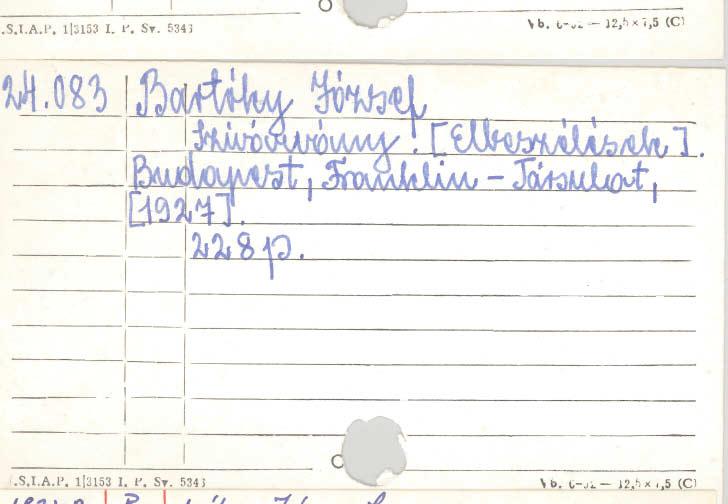 .S.I.A.P. 1|3153 I. P. Sv. 5343
24.083 Bartóky József
Szivárvány. [Elbeszélések].
Budapest, Franklin-Társulat,
[1927].
228 p.
.S.I.A.P. 1|3153 I. P. Sv. 5343